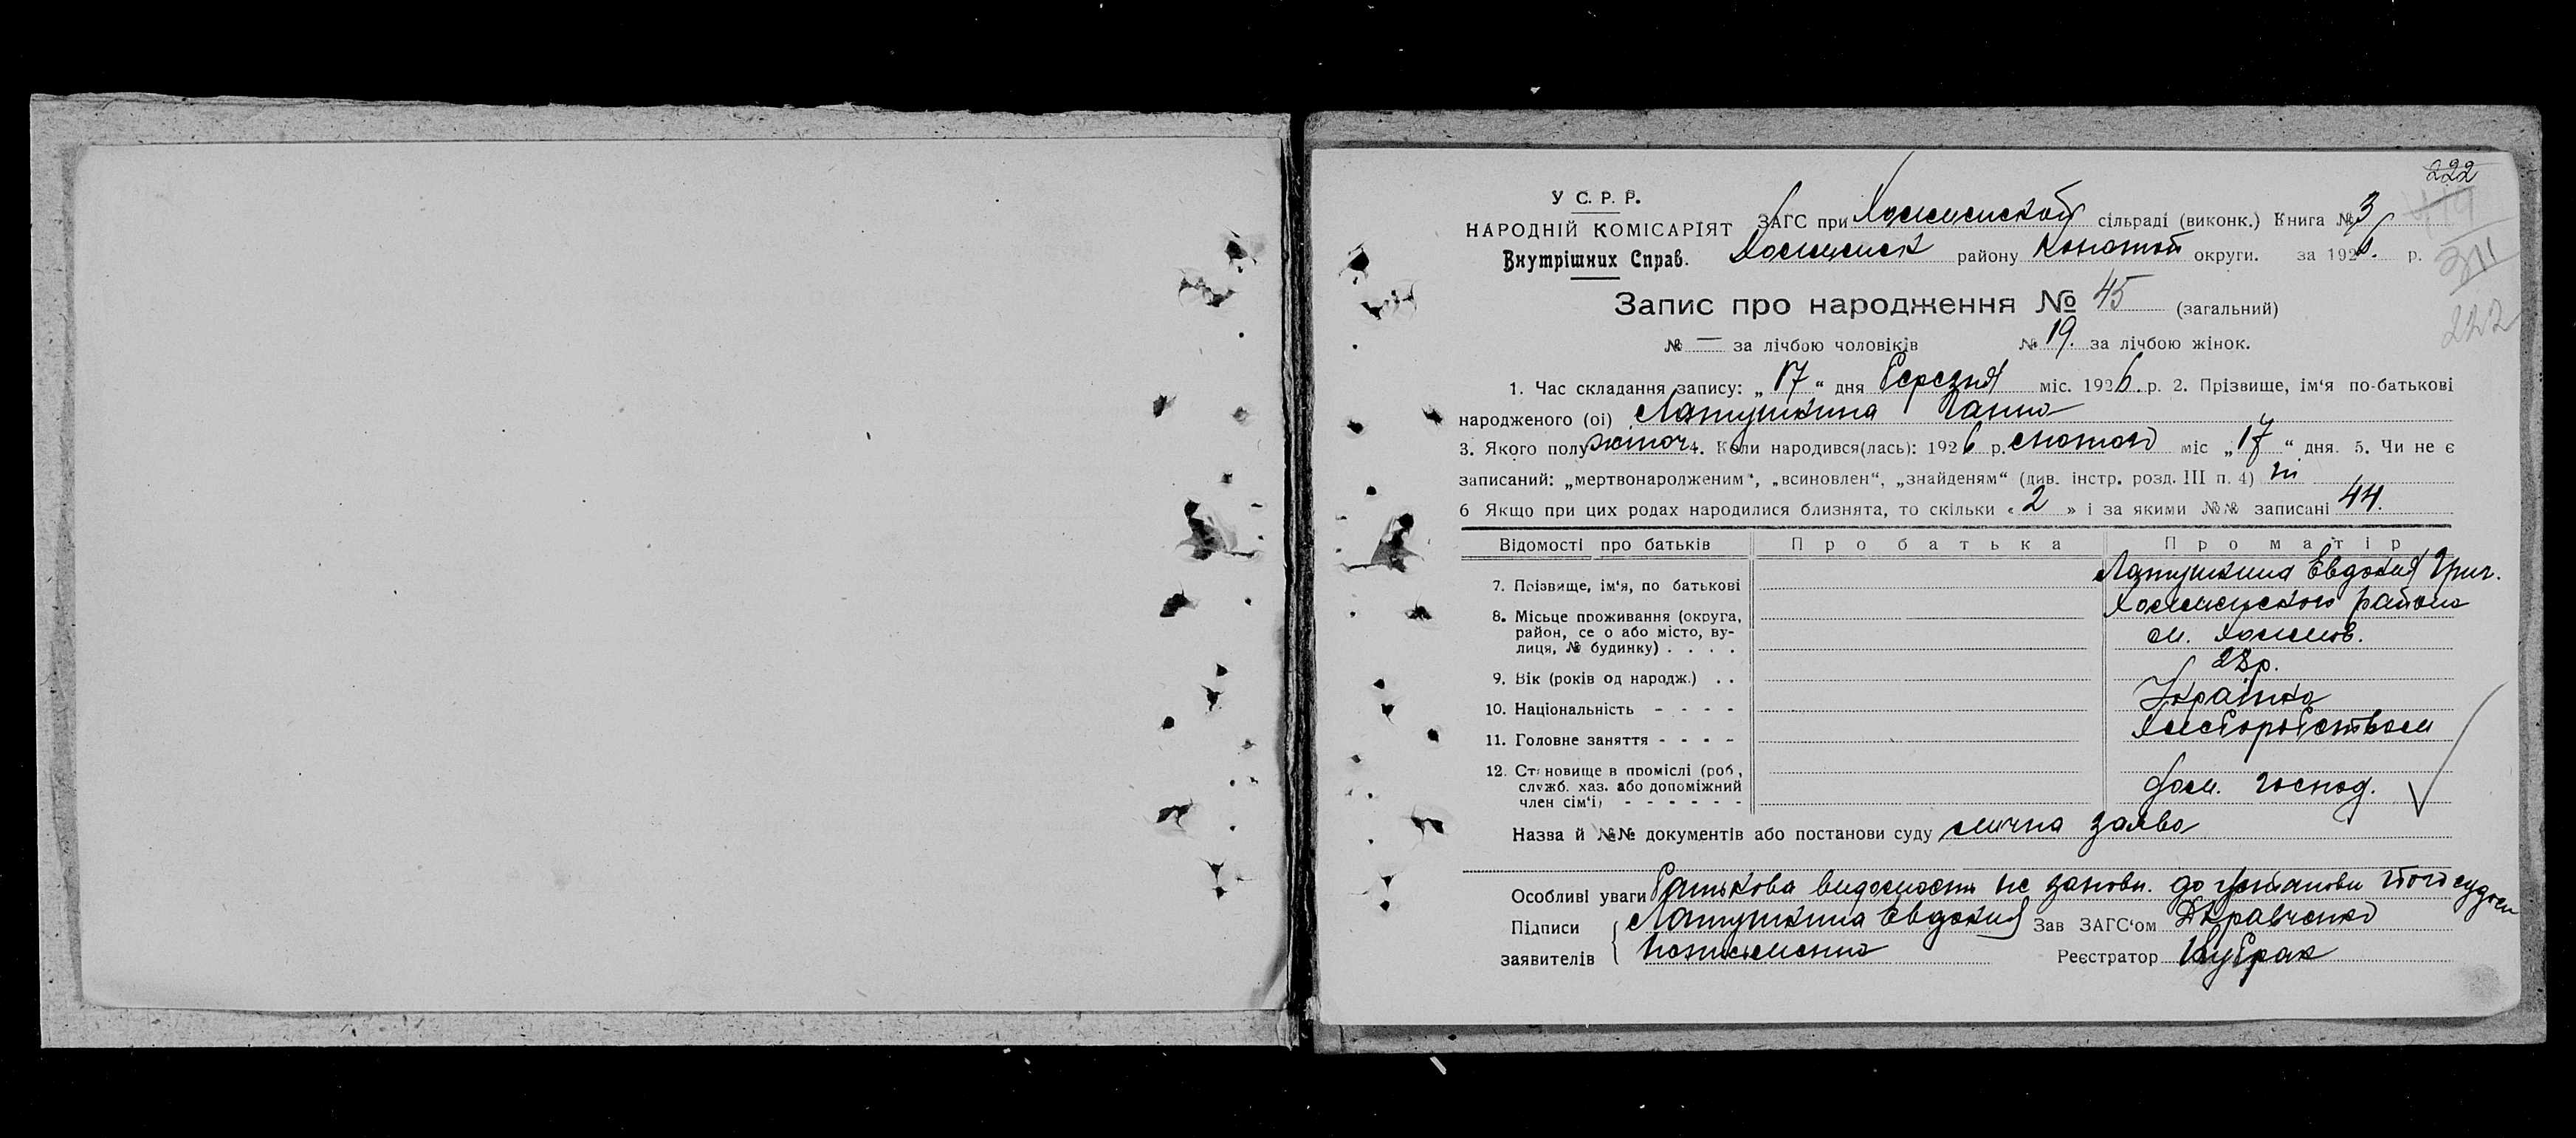 222
У С. Р. Р.
НАРОДНІЙ КОМІСАРІЯТ
Внутрішних Справ.
ЗАГС при сільраді (виконк.) Книга № 3
району Конотоп округи. за 1926. р.
419
311
222
Запис про народження № 45 (загальний)
№ — за лічбою чоловіків № 19. за лічбою жінок.
1. Час складання запису: „17“ дня березня міс. 1926. р. 2. Прізвище, ім‘я по-батькові
народженого (ої) Латушкина Ганна
3. Якого полу жіноч 4. Коли народився(лась): 1926 р. лютого міс „17“ дня. 5. Чи не є
записаний: „мертвонародженим“, „всиновлен“, „знайденям“ (див. інстр. розд. III п. 4) ні
6 Якщо при цих родах народилися близнята, то скільки «2» і за якими №№ записані 44.
Відомості про батьків Про батька Про матір
7. Прізвище, ім‘я, по батькові Латушкина Евдокия Григ.
8. Місьце проживання (округа, району
район, се о або місто, ву- м.
лиця, № будинку) . . . .
9. Вік (років од народж.) . . 28 р.
10. Національність - - - - Українка
11. Головне заняття - - - - Хліборобством
12. Становище в промислі (роб,
служб. хаз. або допоміжний дом. господ.
член сім‘ї) - - - - - -
Назва й №№ документів або постанови суду лична заява
Особливі уваги Батькова видомость не заповн. до установи його судом
Підписи Латушкина Евдокия Зав ЗАГС‘ом Д Кравченко
заявителів Реєстратор Кубрак